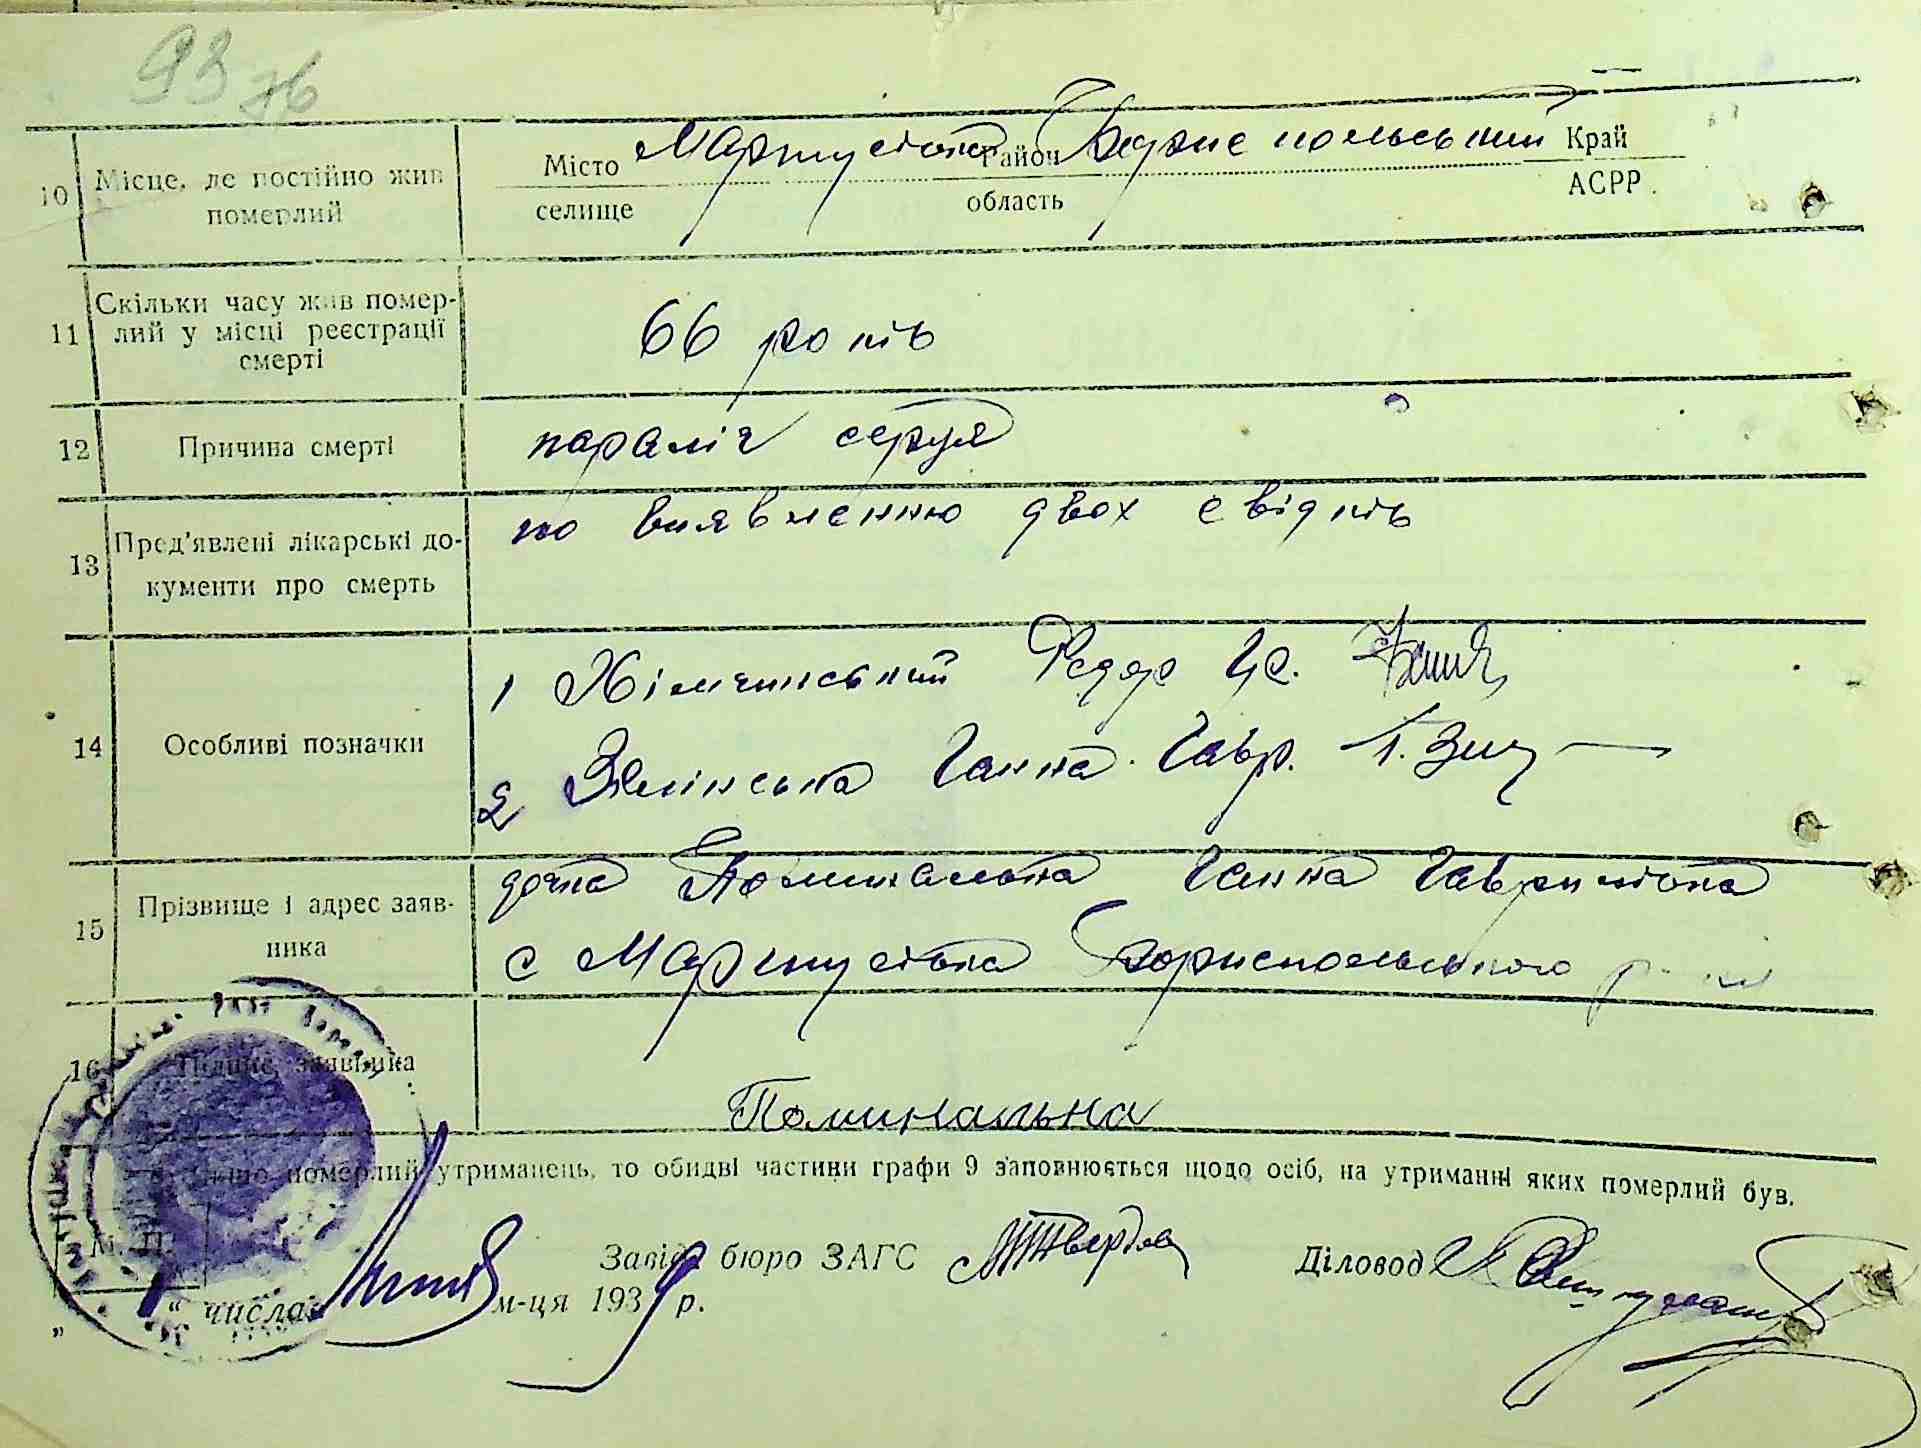 93 зв
10 Місце, де постійно жив померлий
Місто селище Мартусівка Район область Бориспольський Край АСРР
11 Скільки часу жив померлий у місці реєстрації смерті
66 років
12 Причина смерті
параліч серця
13 Пред'явлені лікарські документи про смерть
по виявленню двох свідків
14 Особливі позначки
1 Хімчинський Федор Ів.
2 Зялінська Ганна Гавр.
15 Прізвище і адрес заявника
дочка Поминальна Ганна Гавриловна
с Мартусівка Бориспольського
16 Підпис заявника
Поминальна
Якщо померлий утриманець, то обидві частини графи 9 заповнюється щодо осіб, на утриманні яких померлий був.
М. П.
Завід. бюро ЗАГС
Діловод
„ “ числа м-ця 1939 р.